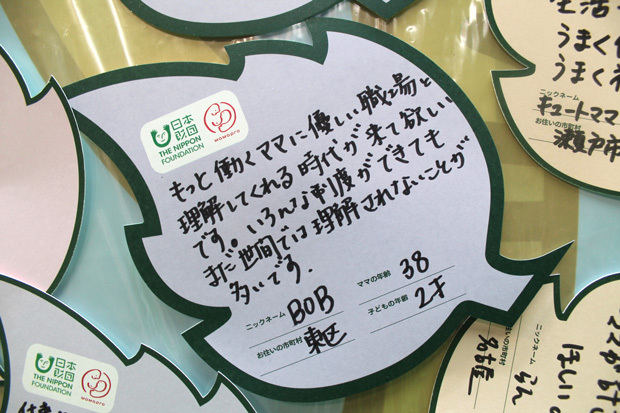 日本
財団
THE NIPPON
FOUNDATION
mamapro
もっと働くママに優しい職場と
理解してくれる時代が来て欲しい
です。いろんな制度ができても
まだ世間では理解されないことが
多いです.
ニックネーム BOB
ママの年齢 38
お住いの市町村 東区
子どもの年齢 2才
生活
うまく
うまく
ニックネーム
キュートママ
お住いの市町村
瀬戸市
日本
財団
THE NIPPON
FOUNDATION
mamapro
ママが
ほしい
ニックネーム
お住いの市町村
名古屋